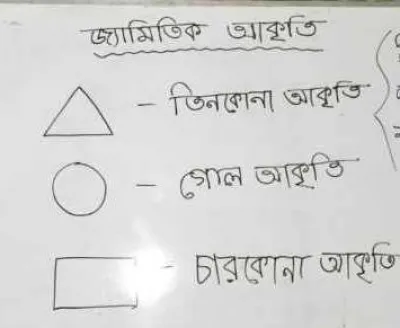 জ্যামিতিক আকৃতি
– তিনকোনা আকৃতি
– গোল আকৃতি
– চারকোনা আকৃতি